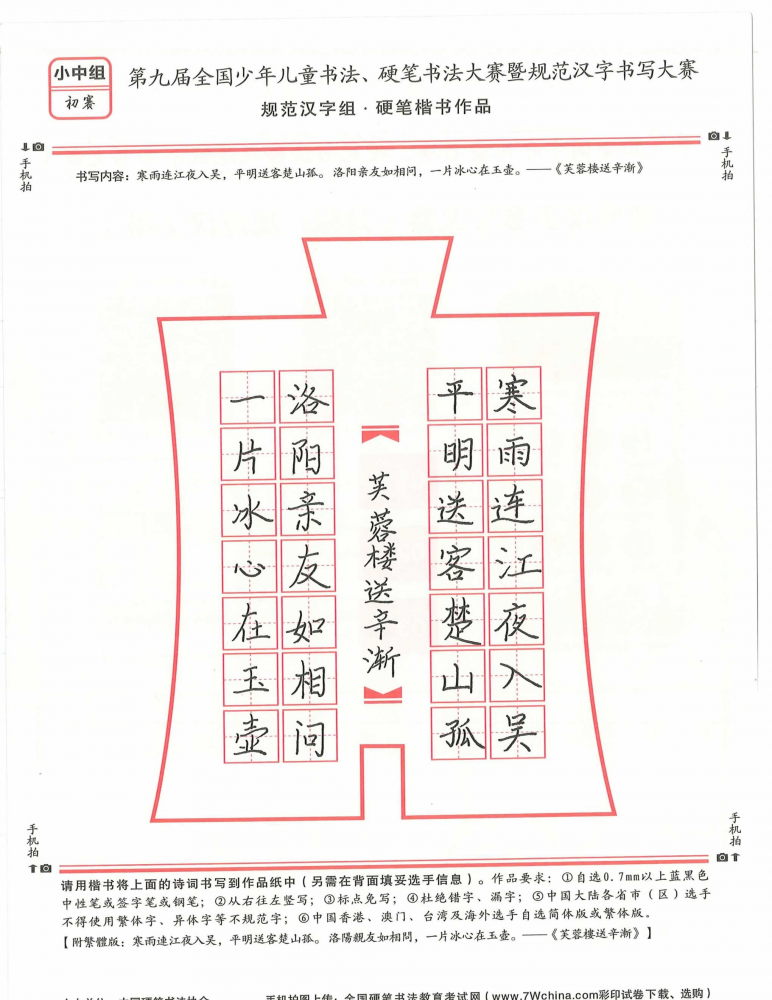 小中组
初赛
第九届全国少年儿童书法、硬笔书法大赛暨规范汉字书写大赛
规范汉字组·硬笔楷书作品
手机拍
手机拍
书写内容：寒雨连江夜入吴，平明送客楚山孤。洛阳亲友如相问，一片冰心在玉壶。——《芙蓉楼送辛渐》
寒雨连江夜入吴
平明送客楚山孤
芙蓉楼送辛渐
洛阳亲友如相问
一片冰心在玉壶
手机拍
手机拍
请用楷书将上面的诗词书写到作品纸中（另需在背面填妥选手信息）。作品要求：①自选0.7mm以上蓝黑色
中性笔或签字笔或钢笔；②从右往左竖写；③标点免写；④杜绝错字、漏字；⑤中国大陆各省市（区）选手
不得使用繁体字、异体字等不规范字；⑥中国香港、澳门、台湾及海外选手自选简体版或繁体版。
【附繁體版：寒雨連江夜入吳，平明送客楚山孤。洛陽親友如相問，一片冰心在玉壺。——《芙蓉樓送辛漸》】
手机拍图上传：全国硬笔书法教育考试网（www.7Wchina.com彩印试卷下载、选购）